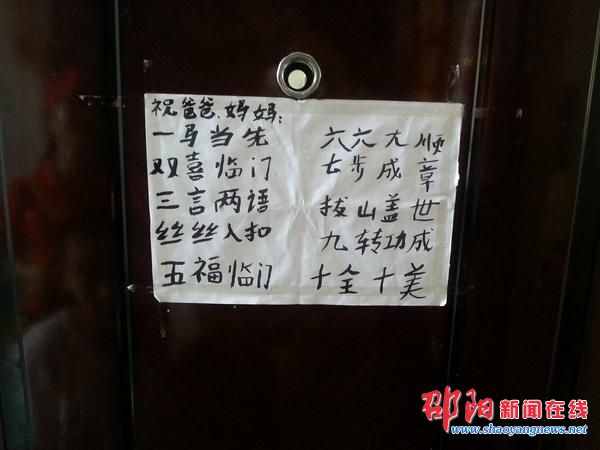 祝爸爸、妈妈:
一马当先
双喜临门
三言两语
丝丝入扣
五福临门
六六大顺
七步成章
拔山盖世
九转功成
十全十美
邵阳新闻在线
www.shaoyangnews.net